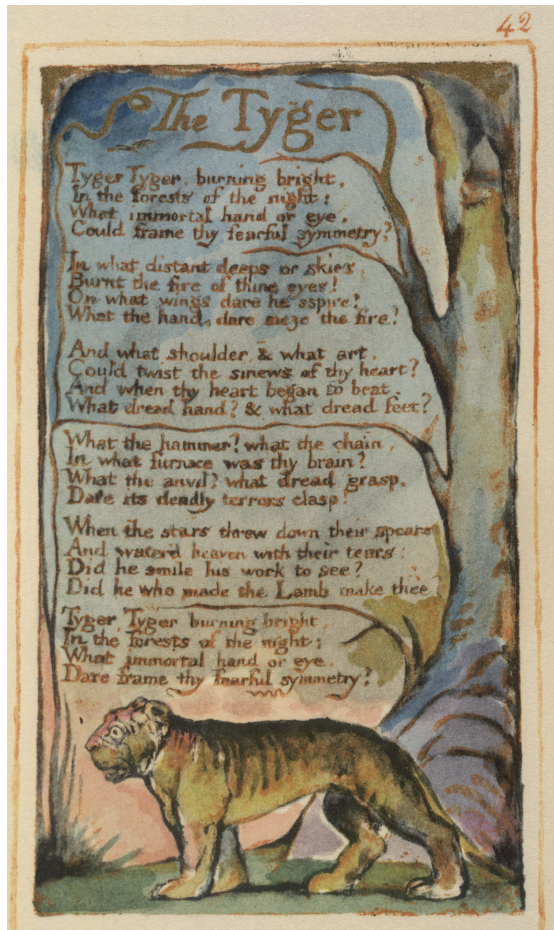 42
The Tyger
Tyger Tyger, burning bright,
In the forests of the night:
What immortal hand or eye,
Could frame thy fearful symmetry?
In what distant deeps or skies,
Burnt the fire of thine eyes!
On what wings dare he aspire!
What the hand, dare sieze the fire?
And what shoulder, & what art,
Could twist the sinews of thy heart?
And when thy heart began to beat,
What dread hand? & what dread feet?
What the hammer? what the chain,
In what furnace was thy brain?
What the anvil? what dread grasp,
Dare its deadly terrors clasp!
When the stars threw down their spears
And water'd heaven with their tears:
Did he smile his work to see?
Did he who made the Lamb make thee
Tyger, Tyger burning bright,
In the forests of the night;
What immortal hand or eye,
Dare frame thy fearful symmetry?